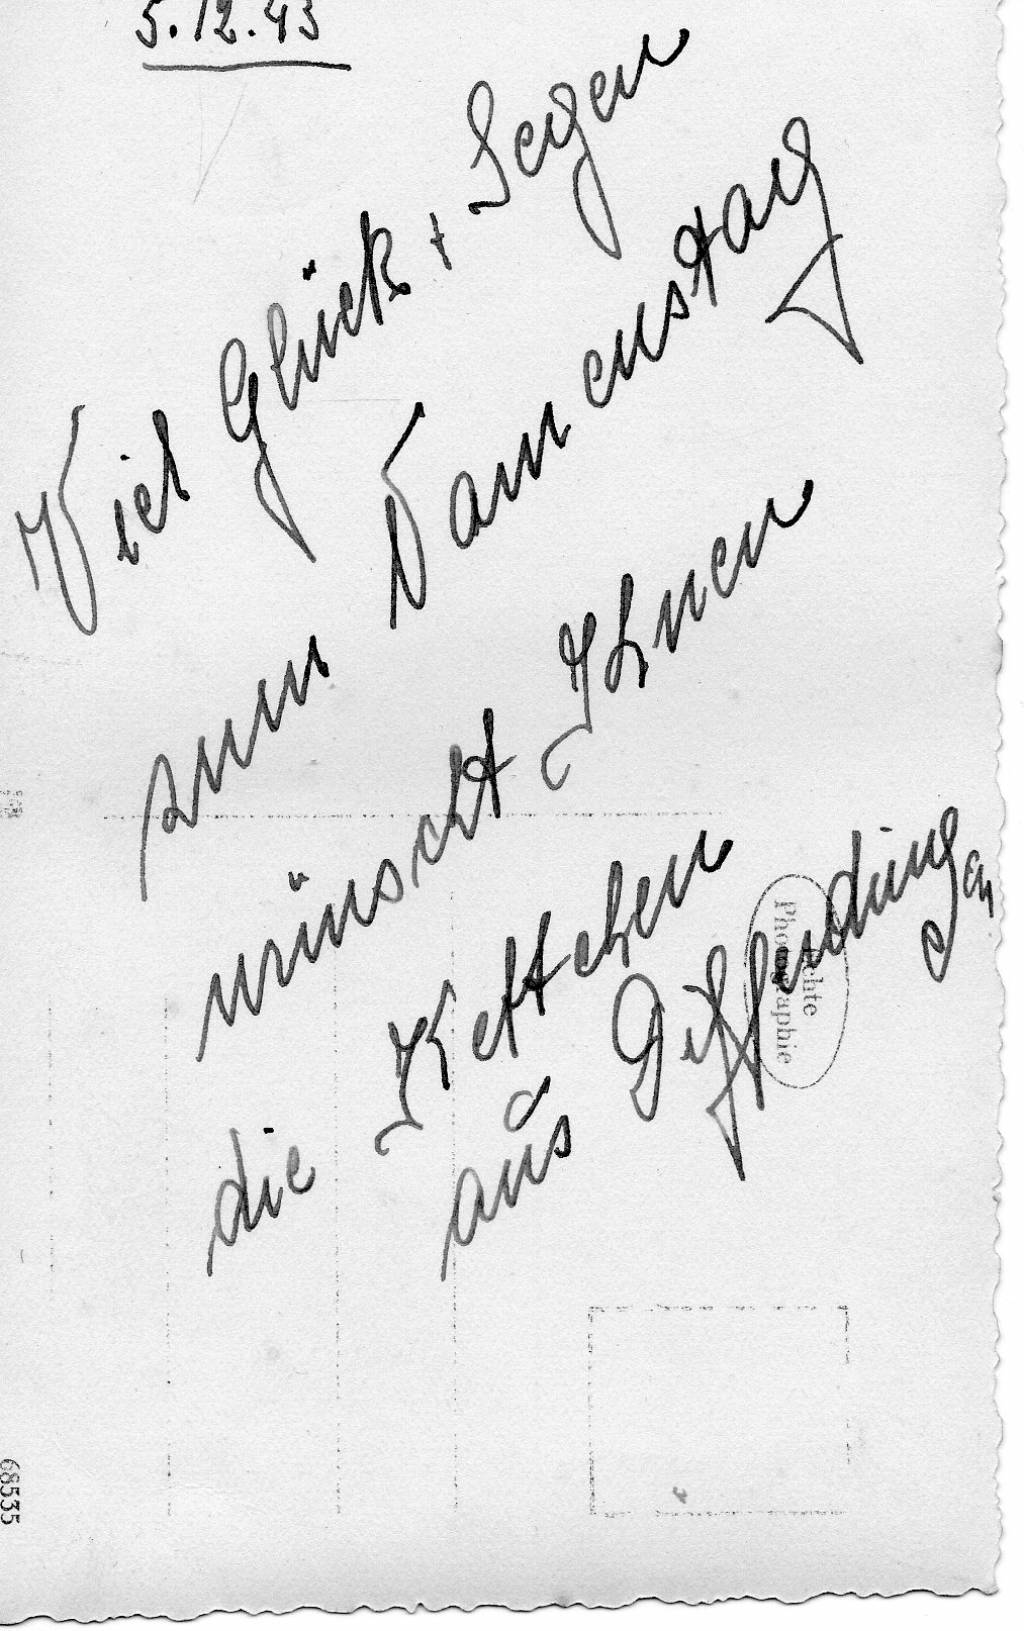 5.12.43
Viel Glück + Segen
zum Namenstag
wünscht Ihnen
die Kettchen
aus Differdingen
Echte
Photographie
68535